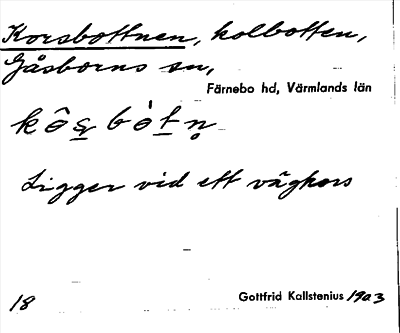 Korsbottnen, kolbotten,
Gåsborns sn,
Färnebo hd, Värmlands län
Ligger vid ett vägkors
18
Gottfrid Kallstenius 1903